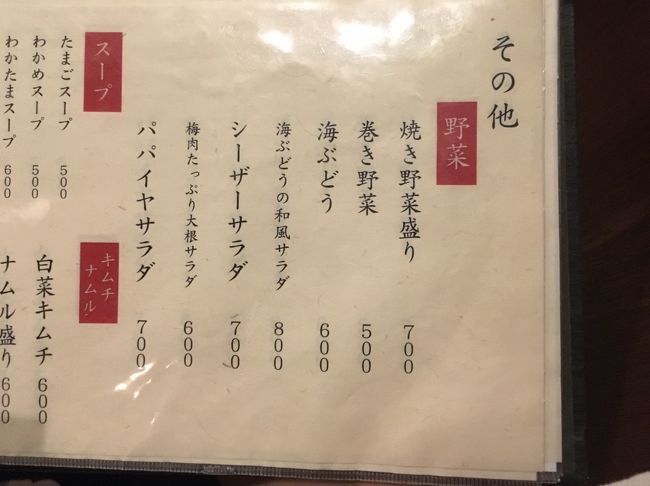 その他
野菜
焼き野菜盛り 700
巻き野菜 500
海ぶどう 600
海ぶどうの和風サラダ 800
シーザーサラダ 700
梅肉たっぷり大根サラダ 600
パパイヤサラダ 700
スープ
たまごスープ 500
わかめスープ 500
わかたまスープ 600
キムチ
ナムル
白菜キムチ 600
ナムル盛り 600